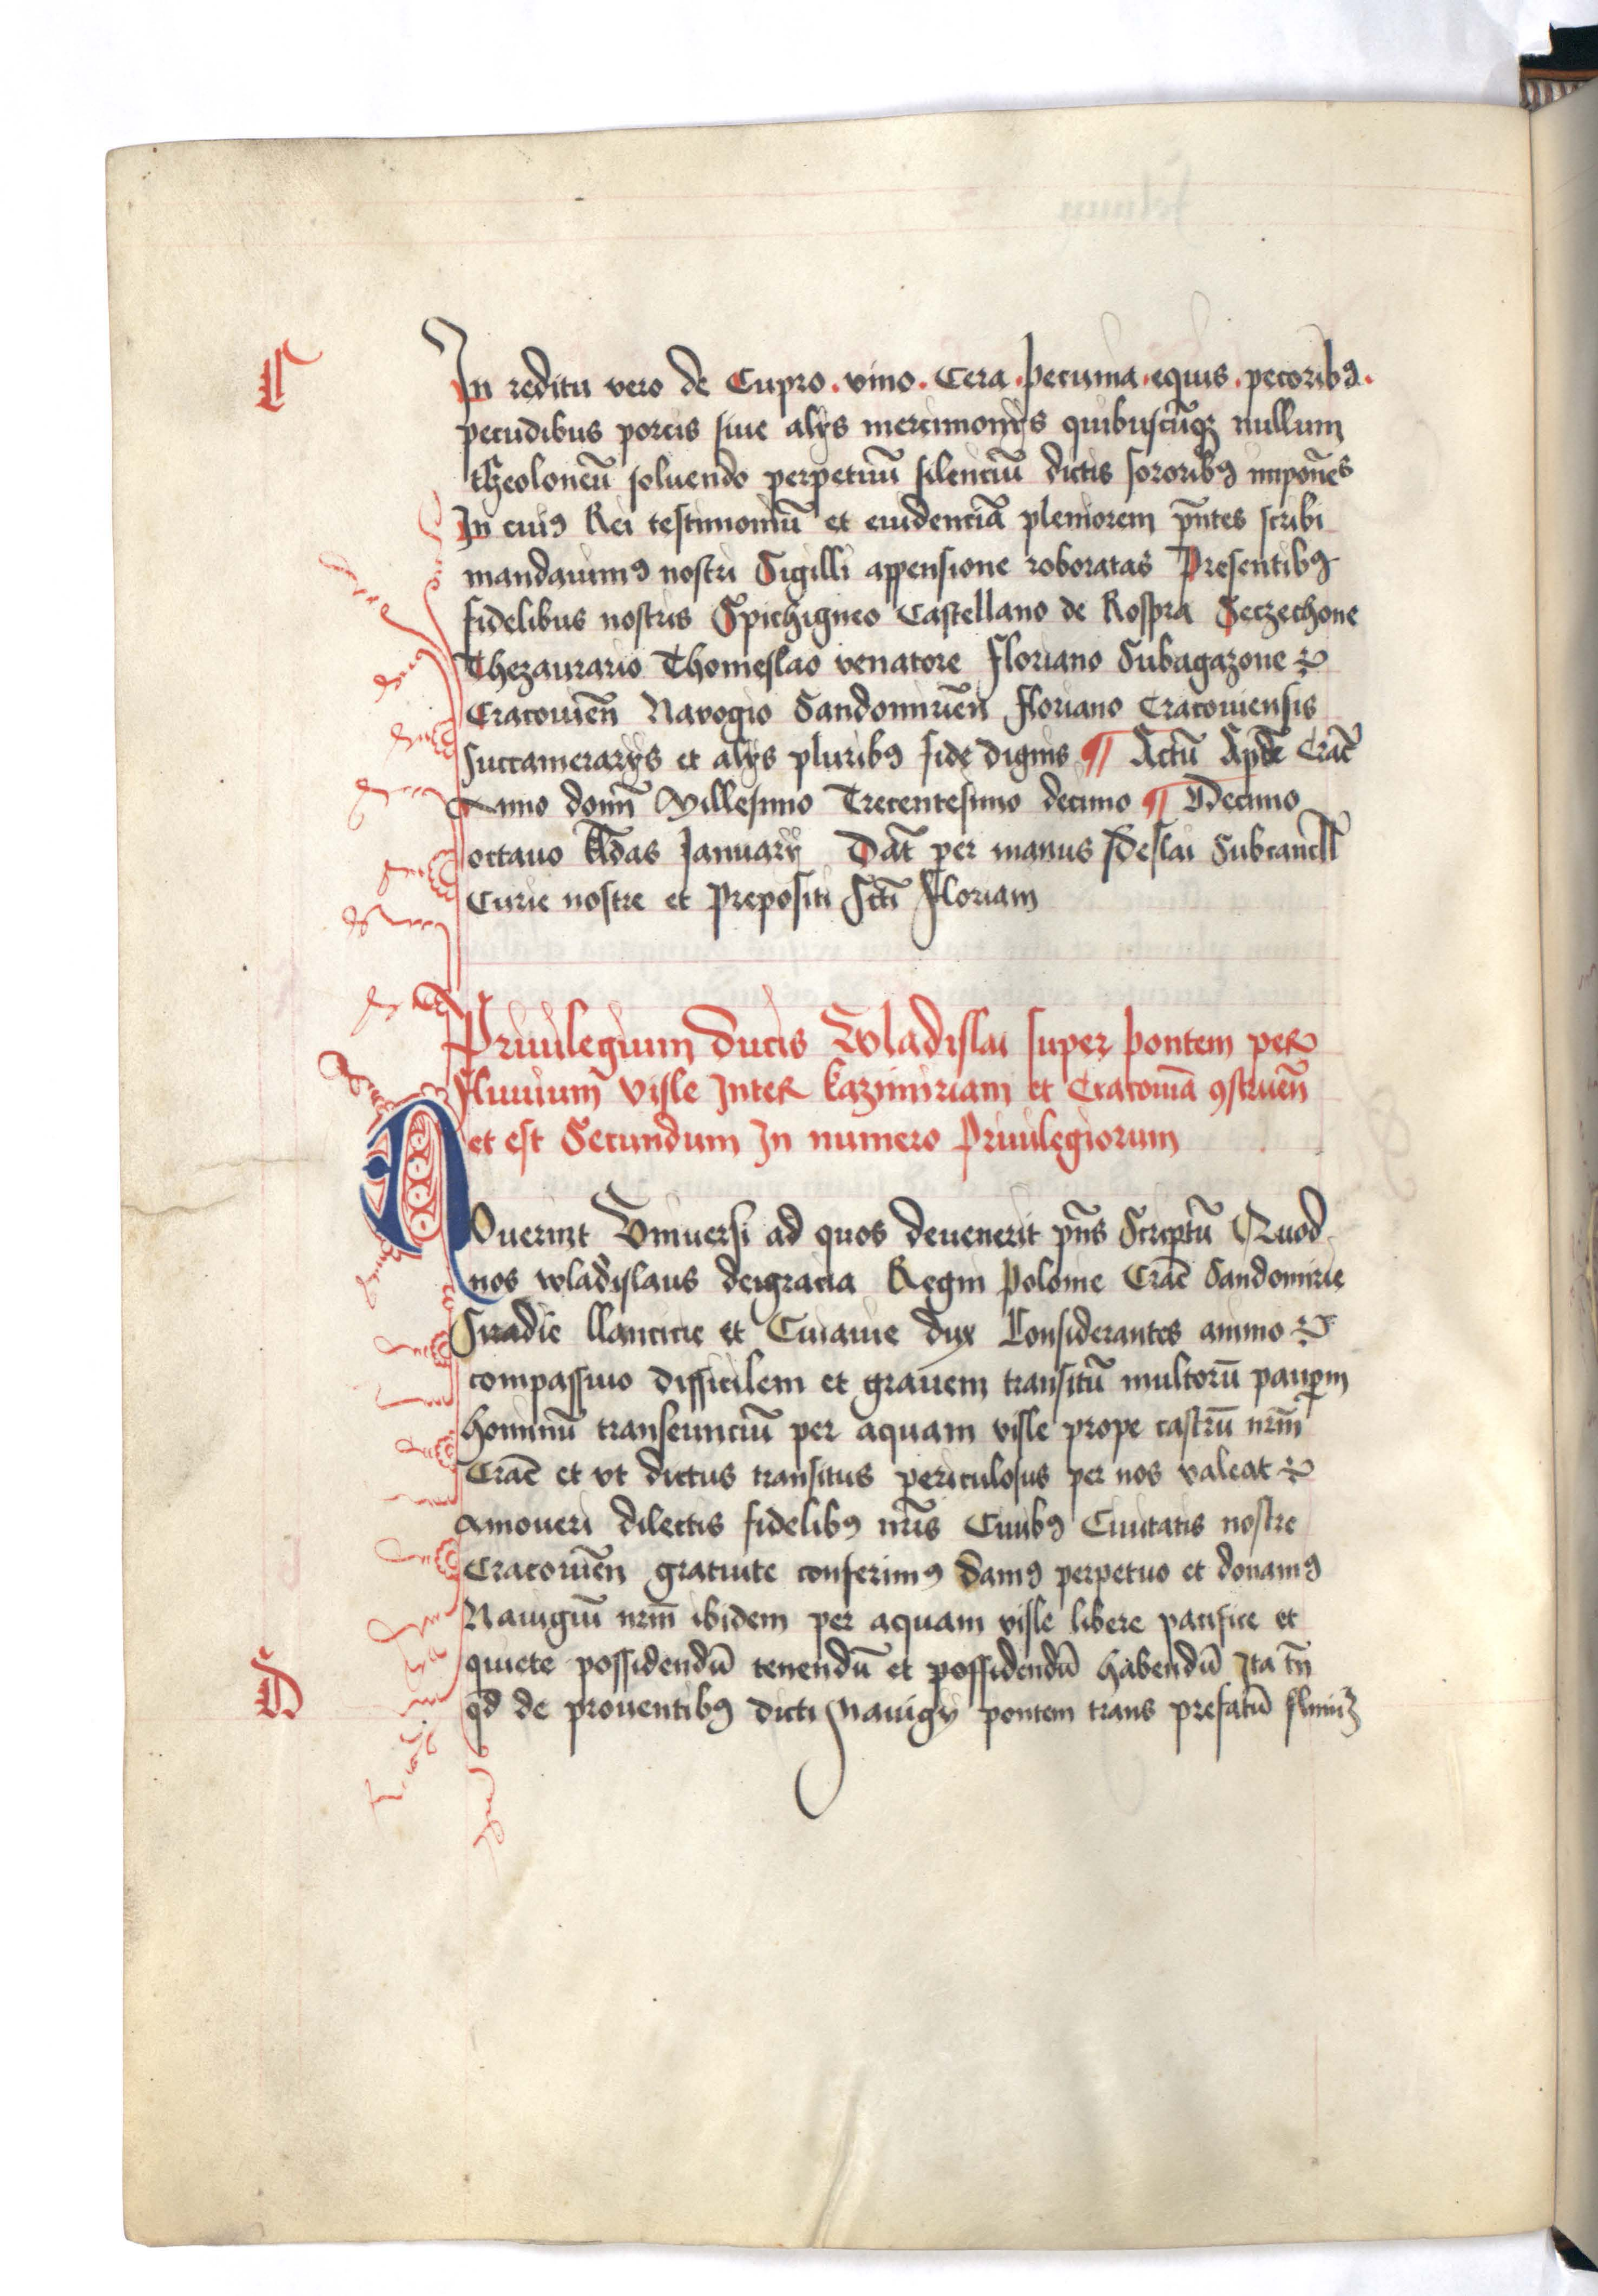 C
In reditu vero de Cupro . vino . Cera . pecunia . equis . pecoribꝰ .
pecudibus porcis siue alijs mercimonijs quibuscūqꝫ nullum
theoloneū soluendo perpetuū silenciū dictis sororibꝰ imponẽs
In cuiꝰ Rei testimoniū et euidenciā pleniorem pñtes scribi
mandauimꝰ nostri Sigilli appensione roboratas Presentibꝰ
fidelibus nostris Spichigneo Castellano de Rospra Seczechone
Thezaurario Thomeslao venatore Floriano Subagazone
Cracouieñ Navogio Sandomirieñ Floriano Cracouiensis
succamerarijs et alijs pluribꝰ fide dignis ¶ Actū Crac̄
Anno domī Millesimo Trecentesimo decimo ¶ Decimo
octauo kl̄das Januarij Dat̄ per manus Subcancell̄
Curie nostre et prepositi Scti Floriani
Priuilegium ducis Wladislai super pontem per
fluuium visle Inter kazimiriam et Cracouiā ꝯstrueñ
et est Secundum In numero Priuilegiorum
Nouerint Vniuersi ad quos deuenerit pñs Scriptū Quod
nos wladislaus deigracia Regni polonie Cracē Sandomirie
Siradie llancicie et Cuiauie dux Considerantes animo
compassiuo difficilem et grauem transitū multorū paupm̄
hominū transeunciū per aquam visle prope castrū nrm̄
Cracē et vt dictus transitus periculosus per nos valeat
Amoueri dilectis fidelibꝰ nr̄is Ciuibꝰ Ciuitatis nostre
Cracouieñ gratuite conferimꝰ damꝰ perpetuo et donamꝰ
Nauigiū nrm̄ ibidem per aquam visle libere pacifice et
quiete possidendū tenendū et possidendū habendū Ita tn̄
D
qd de prouentibꝰ dicti Nauigij pontem trans prefatū fluuiꝫ